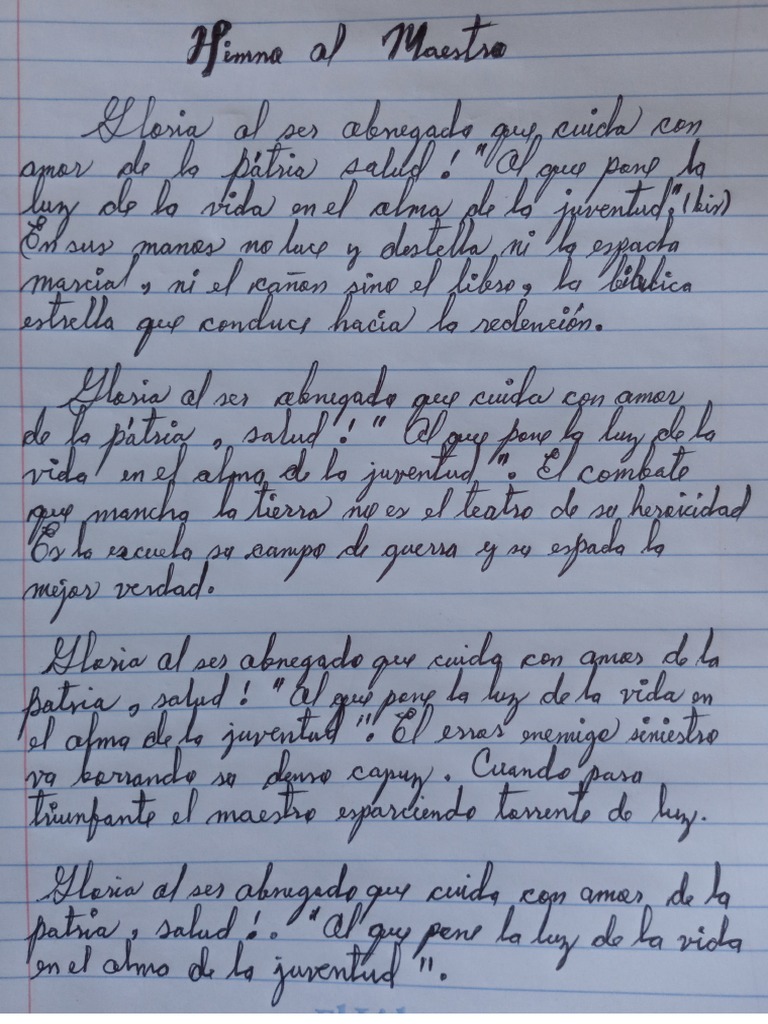 Himno al Maestro
Gloria al ser abnegado que cuida con
amor de la pátria salud! "Al que pone la
luz de la vida en el alma de la juventud". (bis)
En sus manos no luce y destella ni la espada
marcial, ni el cañon sino el libro, la bíblica
estrella que conduce hacia la redención.
Gloria al ser abnegado que cuida con amor
de la pátria, salud! " Al que pone la luz de la
vida en el alma de la juventud". El combate
que mancha la tierra no es el teatro de su heroicidad
Es la escuela su campo de guerra y su espada la
mejor verdad.
Gloria al ser abnegado que cuida con amor de la
patria, salud! "Al que pone la luz de la vida en
el alma de la juventud". El error enemigo siniestro
va borrando su denso capuz. Cuando pasa
triunfante el maestro esparciendo torrente de luz.
Gloria al ser abnegado que cuida con amor de la
patria, salud!. "Al que pone la luz de la vida
en el alma de la juventud".